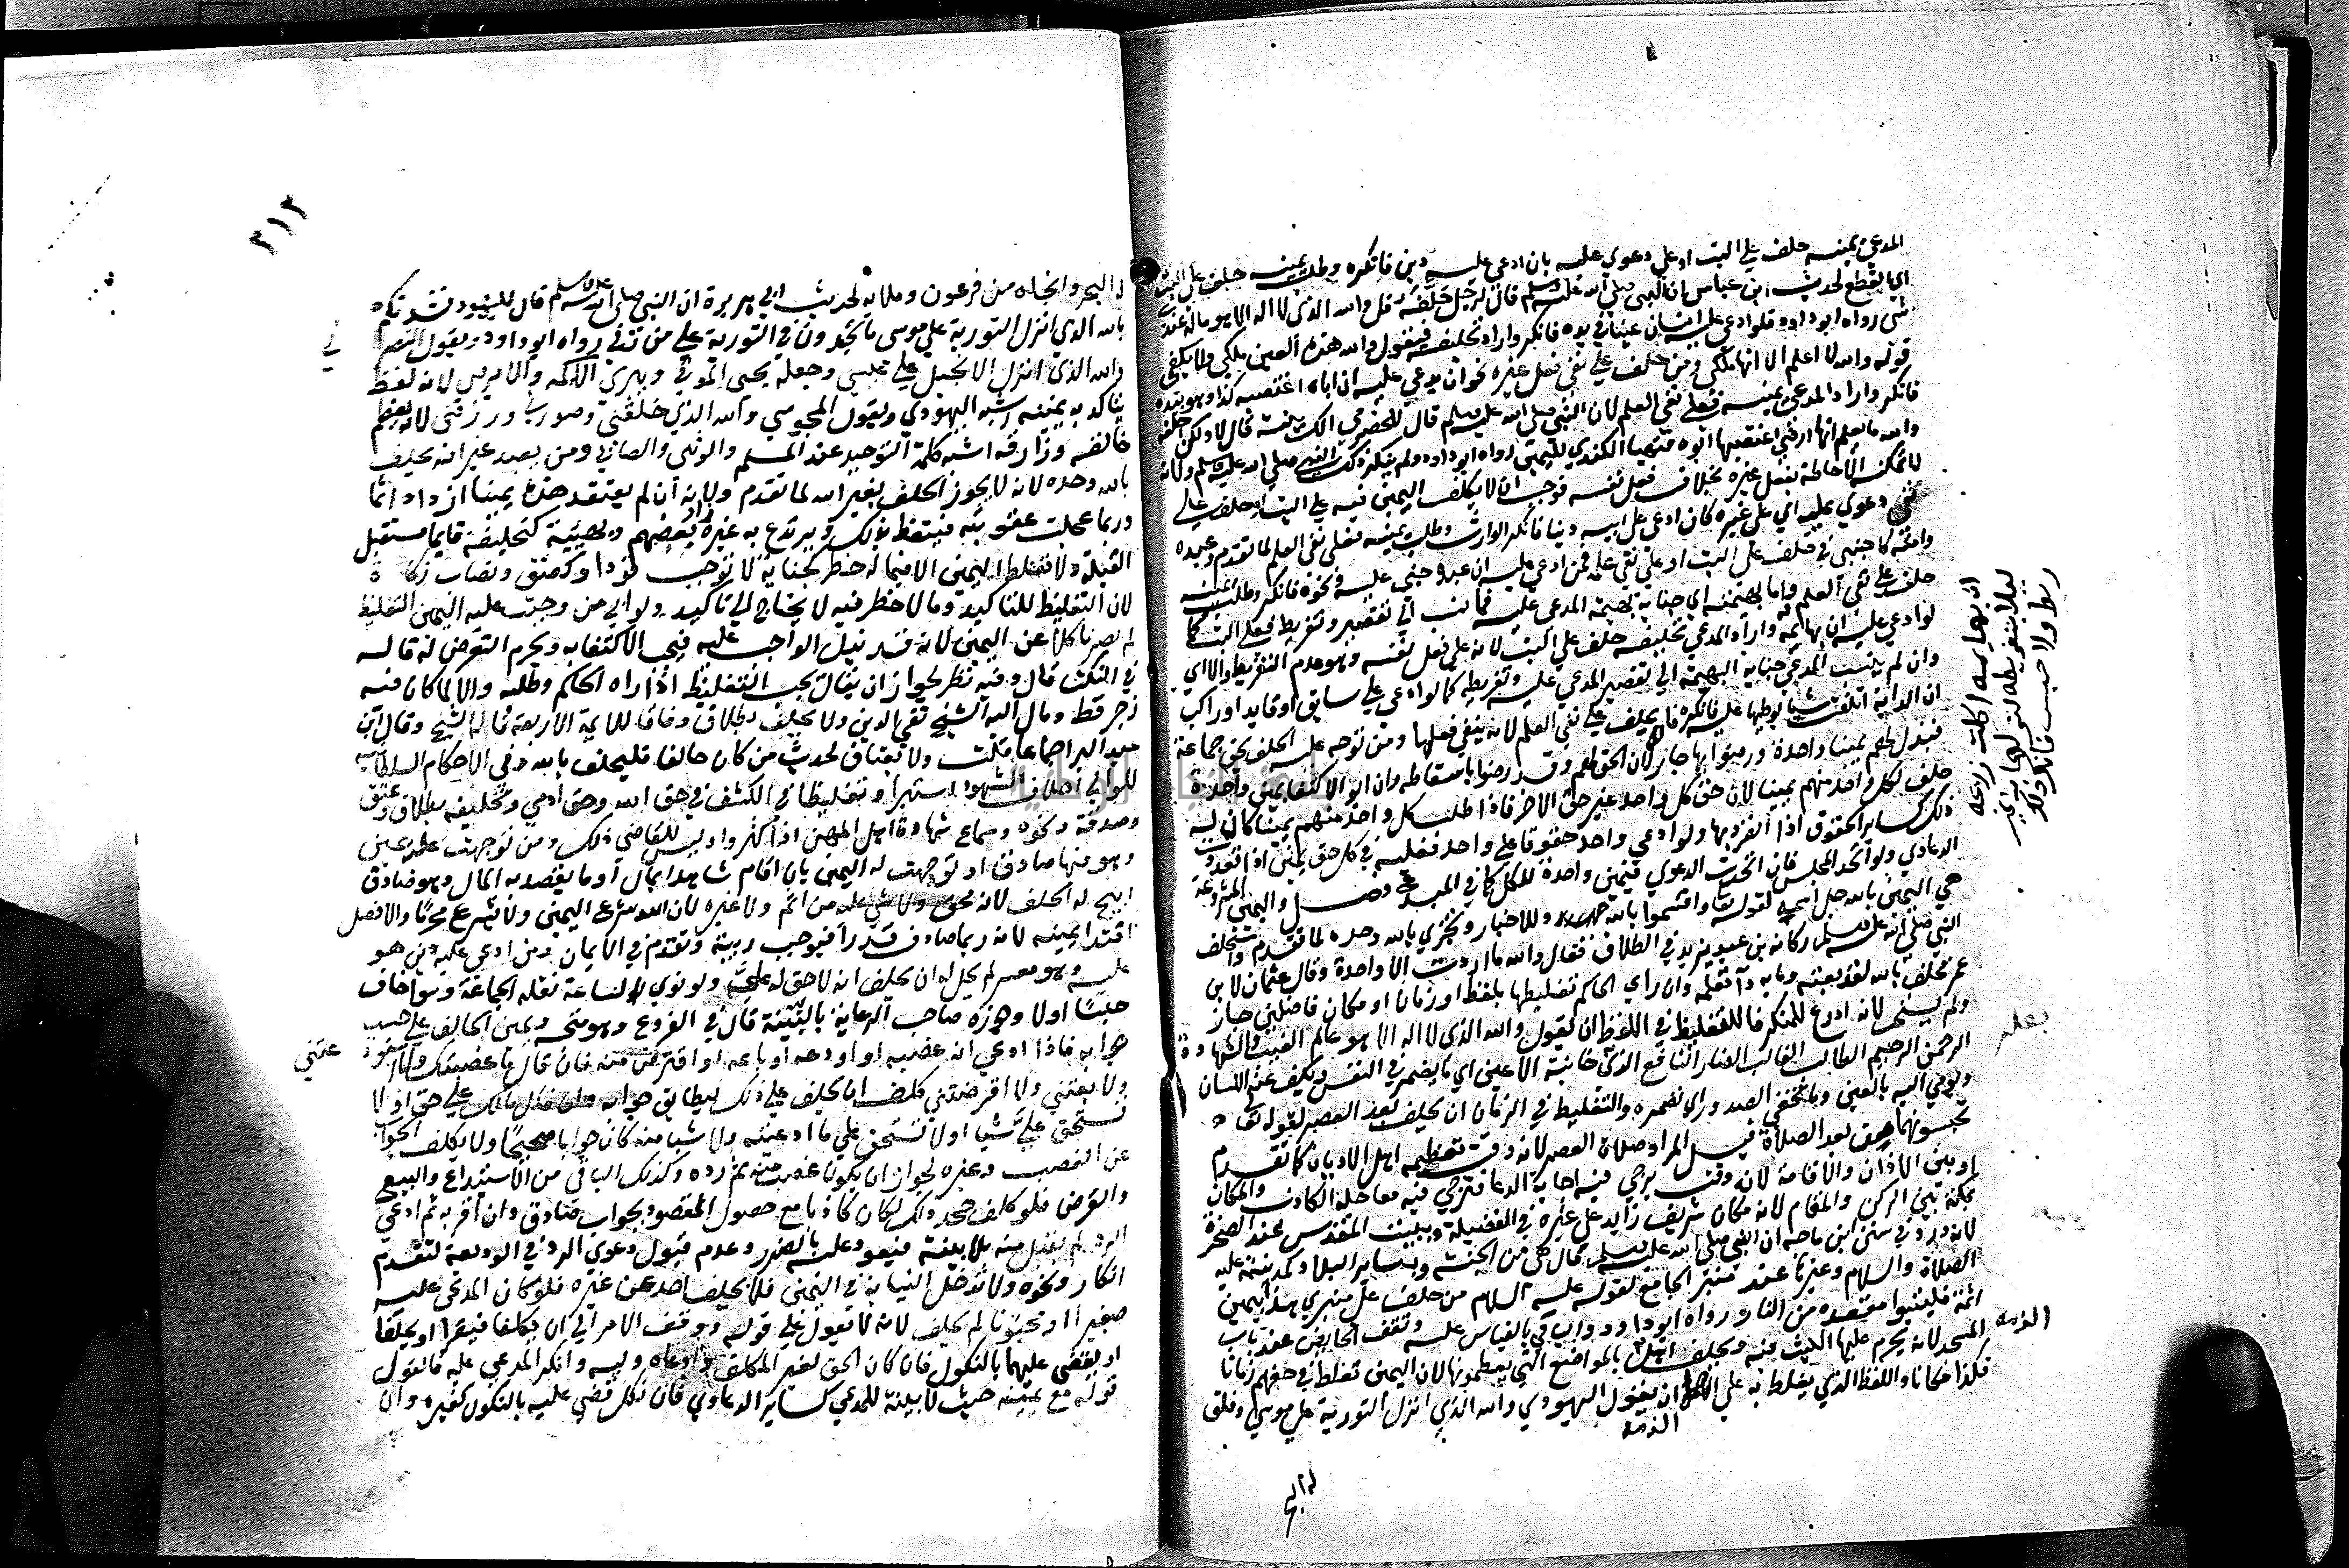 المدعي يمينه حلف على البت او على دعوى عليه بان ادعي عليه دين فانكره وطلب يمينه حلف على البت
اي القطع لحديث ابن عباس ان النبي صلى الله عليه وسلم قال لرجل حلفه قل والله الذي لا اله الا هو ماله عندك
شي رواه ابو داود فلو ادعى على انسان عينا في يده فانكر واراد تحليفه فيقول والله هذه العين ملكي ولا يكفي
قوله والله لا اعلم الا انها ملكي ومن حلف على نفي فعل غيره نحو ان يدعي عليه ان اباه اغتصبه كذا وهو بيده
فانكر واراد المدعي يمينه فعلى نفي العلم لان النبي صلى الله عليه وسلم قال للحضرمي الك بينة قال لا ولكن احلفه
والله ما يعلم انها ارضي اغتصبها ابوه فتهيا الكندي لليمين رواه ابو داود ولم ينكر ذلك النبي صلى الله عليه وسلم ولانه
لا تمكنه الاحاطة بفعل غيره بخلاف فعل نفسه فوجب ان لا يكلف اليمين فيه على البت او حلف على
نفي دعوى عليه اي على غيره كان ادعى على ابيه دينا فانكر الوارث وطلب يمينه فعلى نفي العلم لما تقدم وعبده
وامته كاجنبي في حلف على البت او على نفي علم فمن ادعي عليه ان عبده جنى عليه ونحوه فانكر وطلبت يمينه
حلف على نفي العلم واما بهيمته اي جناية بهيمة المدعى عليه فما نسب الى تقصير وتفريط فعلى البت كما
لو ادعي عليه ان بهائمه واراد المدعي تحليفه حلف على البت لانه على فعل نفسه وهو عدم التفريط والا اي
وان لم ينسب المدعي جناية البهيمة الى تقصير المدعى عليه وتفريطه كما لو ادعى على سايق او قايد او راكب
ان الدابة اتلفت شيا بوطئها عليه فانكره فانه يحلف على نفي العلم لانه ينفي فعلها ومن توجه عليه الحلف بحق جماعة
فبذل لهم يمينا واحدة ورضوا بها جاز لان الحق لهم وقد رضوا باسقاطه وان ابوا الاكتفا بيمين واحدة
حلف لكل واحد منهم يمينا لان حق كل واحد غير حق الاخر فاذا طلب كل واحد منهم يمينا كان له
ذلك كساير الحقوق اذا انفرد بها ولو ادعى واحد حقوقا على واحد فعليه في كل حق يمين اذا تعددت
الدعاوي ولو اتحد المجلس فان اتحدت الدعوى فيمين واحدة للكل كما في المبدع فصل واليمين المشروعة
هي اليمين بالله جل اسمه لقوله تعالى واقسموا بالله وللاخبار وتجزي بالله وحده لما تقدم واستحلف
النبي صلى الله عليه وسلم ركانة بن عبد يزيد في الطلاق فقال والله ما اردت الا واحدة وقال عثمان لابن
عمر تحلف بالله لقد بعته وما به داء تعلمه وان راى الحاكم تغليظها بلفظ او زمان او مكان فاضلين جاز
ولم يستحب لانه اردع للمنكر فالتغليظ في اللفظ ان يقول والله الذي لا اله الا هو عالم الغيب والشهادة
الرحمن الرحيم الطالب الغالب الضار النافع الذي خائنة الاعين اي ما يضمر في النفس ويكف عنه اللسان
ويومي اليه بالعين وما تخفي الصدور اي تضمره والتغليظ في الزمان ان يحلف بعد العصر لقوله تعالى
تحبسونهما من بعد الصلاة قيل المراد صلاة العصر لانه وقت تعظيمه اهل الاديان كما تقدم
او بين الاذان والاقامة لانه وقت يرجى فيه اجابة الدعا فترجى فيه معاجلة الكاذب والمكان
بمكة بين الركن والمقام لانه مكان شريف زايد على غيره في الفضيلة وببيت المقدس عند الصخرة
لانه ورد في سنن ابن ماجه ان النبي صلى الله عليه وسلم قال هي من الجنة وبساير البلاد كمدينته عليه
الصلاة والسلام وغيرها عند منبر الجامع لقوله عليه السلام من حلف على منبري هذا بيمين
اثمة فليتبوا مقعده من النار رواه ابو داود والباقي بالقياس عليه وتقف الحايض عند باب
المسجد لانه يحرم عليها اللبث فيه ويحلف اهل الذمة بالمواضع التي يعظمونها لان اليمين تغلظ في حقهم زمانا
فكذا مكانا واللفظ الذي يغلظ به على اهل الذمة ان يقول اليهودي والله الذي انزل التورية على موسى وفلق
بعلمه
٢١٢
له البحر وانجاه من فرعون وملايه لحديث ابي هريرة ان النبي صلى الله عليه وسلم قال لليهود نشدتكم
بالله الذي انزل التورية على موسى ما تجدون في التورية على من زنى رواه ابو داود ويقول النصراني
والله الذي انزل الانجيل على عيسى وجعله يحيي الموتى ويبري الاكمه والابرص لانه لفظ
يتاكد به يمينه اشبه اليهودي ويقول المجوسي والله الذي خلقني وصورني ورزقني لانه يعظم
خالقه ورازقه اشبه كلمة التوحيد عند المسلم والوثني والصابي ومن يعبد غير الله يحلف
بالله وحده لانه لا يجوز الحلف بغير الله لما تقدم ولانه ان لم يعتقد هذه يمينا ازداد اثما
وربما عجلت عقوبته فيتعظ بذلك ويرتدع به غيره وبهيئة كتحليفه قايما مستقبل
القبلة ولا تغلظ اليمين الا فيما له خطر كجناية لا توجب قودا وكعتق ونصاب زكاة
لان التغليظ للتاكيد وما لا خطر فيه لا يحتاج الى تاكيد ولو ابى من وجبت عليه اليمين التغليظ
لم يصر ناكلا عن اليمين لانه قد بذل الواجب عليه فيجب الاكتفا به ويحرم التعرض له قاله
في النكت قال وفيه نظر لجواز ان يقال يجب التغليظ اذا راه الحاكم وطلبه والا لما كان فيه
زجر قط ومال اليه الشيخ تقي الدين ولا يحلف بطلاق وفاقا للايمة الاربعة قاله الشيخ وقال ابن
عبد البر اجماعا قلت ولا بعتاق لحديث من كان حالفا فليحلف بالله وفي الاحكام السلطانية
للوالي احلاف الشهود استبراء وتغليظا في الكشف في حق الله وحق ادمي وتحليفه بطلاق وعتق
وصدقة ونحوه وسماع شهادة اهل المهن اذا كثروا وليس للقاضي ذلك ومن توجهت عليه يمين
وهو فيها صادق او توجهت له اليمين بان اقام شاهدا بمال او ما يقصد به المال وهو صادق
ابيح له الحلف لانه محق ولا شي عليه من اثم ولا غيره لان الله شرع اليمين ولا يشرع محرما والافضل
افتدا يمينه لانه ربما صادف قدرا فيوجب ريبة وتقدم في الايمان ومن ادعي عليه دين هو
عليه وهو معسر لم يحل له ان يحلف انه لا حق له علي ولو نوى الساعة نقله الجماعة وسوا خاف
حبسا اولا وجوزه صاحب الرعاية بالنية قال في الفروع وهو متجه ويمين الحالف على حسب
جوابه فاذا ادعي انه غصبه او اودعه او باعه او اقترض منه فان قال ما غصبتك ولا استودعتني
ولا بعتني ولا اقرضتني كلف ان يحلف على ذلك ليطابق جوابه وان قال مالك على حق او لا
تستحق علي شيا او لا تستحق علي ما ادعيته ولا شيا منه كان جوابا صحيحا ولا يكلف الجواب
عن الغصب وغيره لجواز ان يكون غصب منه ثم رده وكذلك الباقي من الاستيداع والبيع
والقرض فلو كلف جحد ذلك لكان كاذبا مع حصول المقصود بجواب صادق وان اقر به ثم ادعى
الرد لم يقبل منه بلا بينة فيعود عليه بالضرر وعدم قبول دعوى الرد في الوديعة لتقدم
انكار ونحوه ولا تدخل النيابة في اليمين فلا يحلف احد عن غيره فلو كان المدعى عليه
صغيرا او مجنونا لم يحلف لانه لا تعويل على قوله ووقف الامر الى ان يكلفا فيقرا او يحلفا
او يقضى عليهما بالنكول فان كان الحق لغير المكلف وادعاه وليه وانكر المدعى عليه فالقول
قوله مع يمينه حيث لا بينة للمدعي كساير الدعاوي فان نكل قضي عليه بالنكول كغيره وان